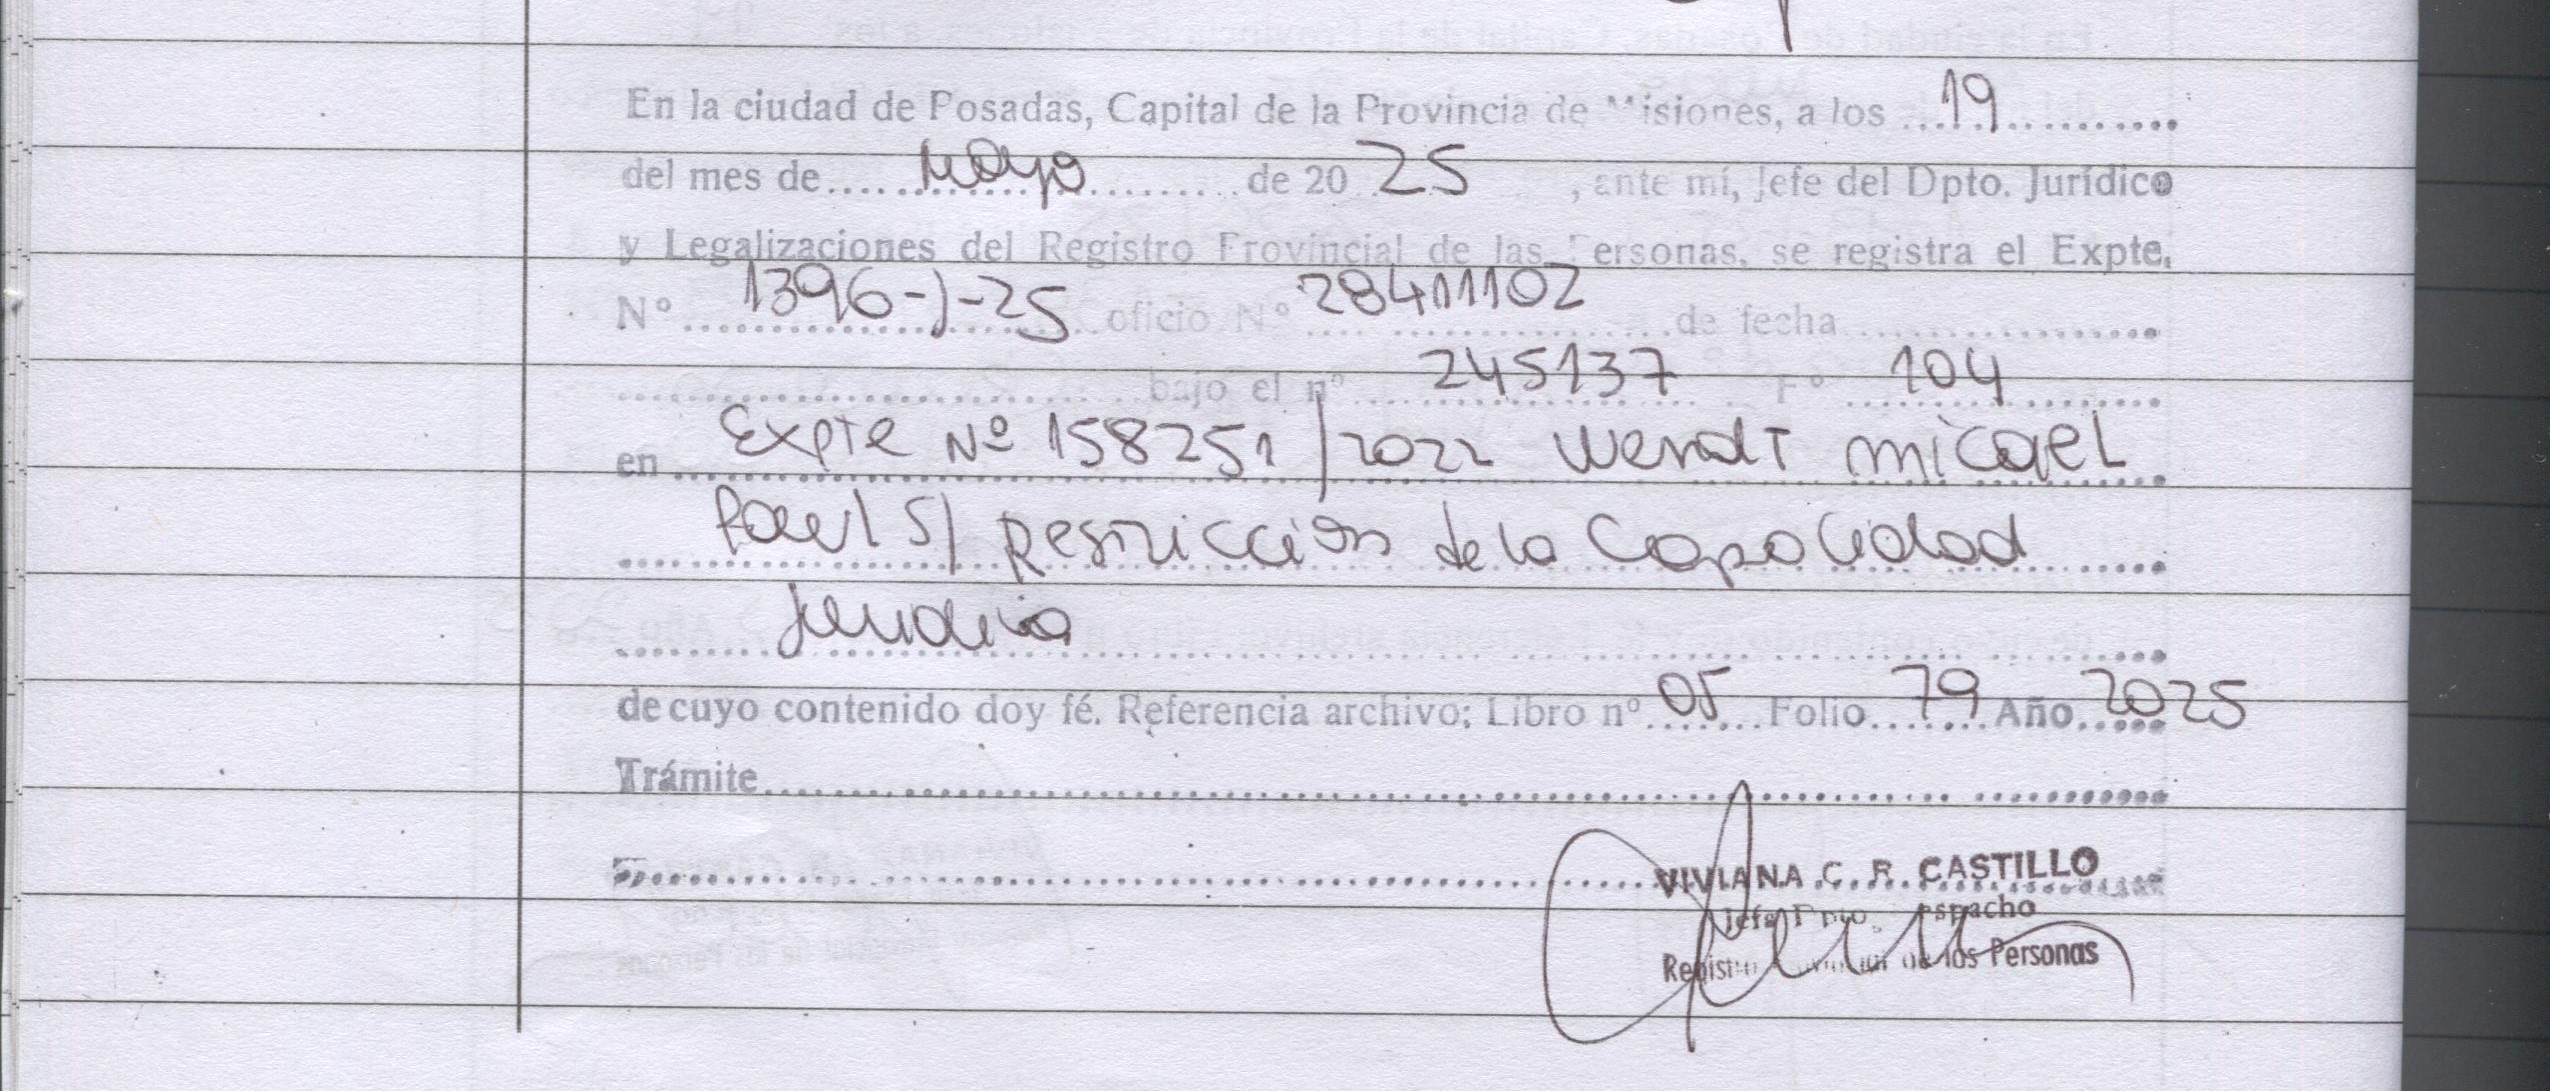 En la ciudad de Posadas, Capital de la Provincia de Misiones, a los 19
del mes de Mayo de 20 25, ante mí, Jefe del Dpto. Jurídico
y Legalizaciones del Registro Provincial de las Personas, se registra el Expte.
Nº 1396-J-25 oficio Nº 28411102 de fecha
bajo el nº 245137 Fº 104
en Expte Nº 158251/2022 Wendt Micael
Paul S/ Restricción de la Capacidad
Juridica
de cuyo contenido doy fé. Referencia archivo: Libro nº 05 Folio 79 Año 2025
Trámite
VIVIANA C. R. CASTILLO
Jefa Dpto. Despacho
Registro Provincial de las Personas